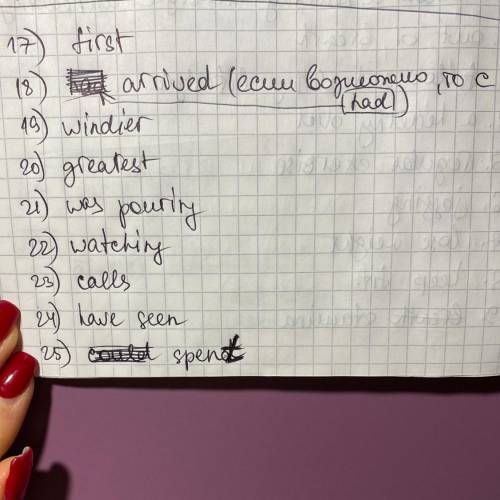 17) first
18) arrived (если возможно, то с
had)
19) windier
20) greatest
21) was pouring
22) watching
23) calls
24) have seen
25) spent